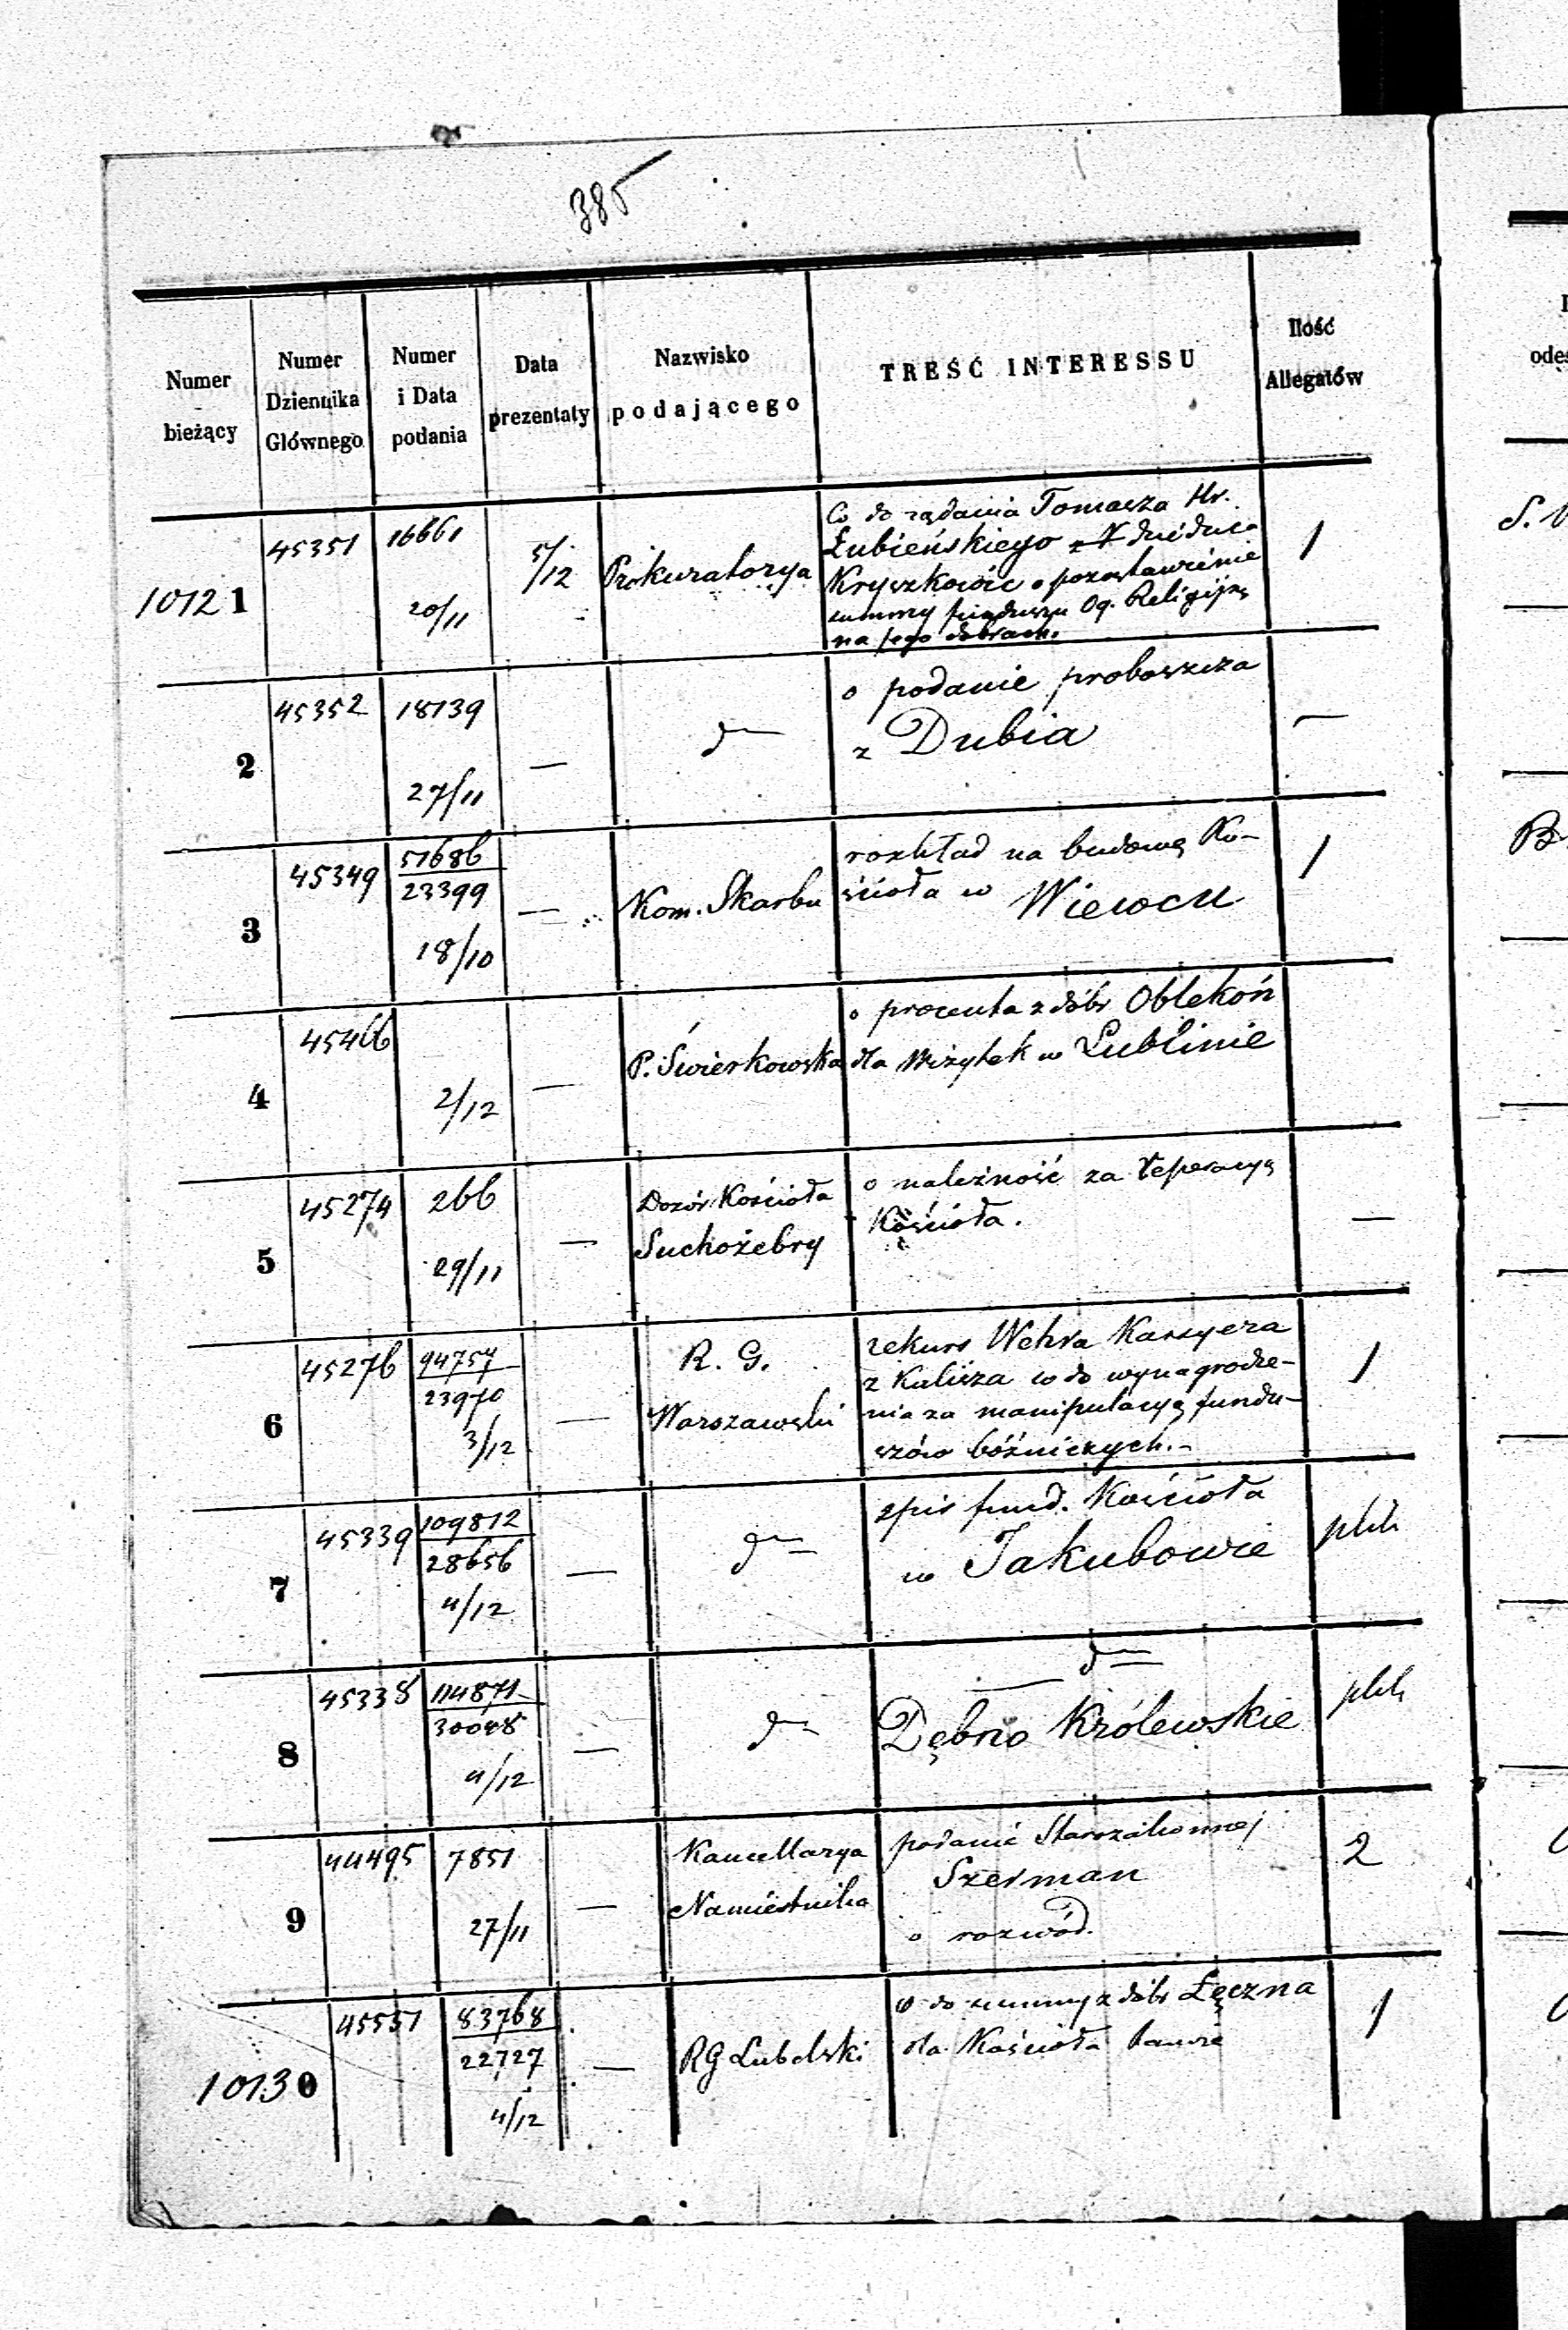 385
Numer
bieżący
Numer
Dziennika
Głównego
Numer
i Data
podania
Data
prezentaty
Nazwisko
podającego
TREŚĆ INTERESSU
Ilość
Allegatów
10121
45351
16661
20/11
5/12
Prokuratorya
Co do żądania Tomasza Hr.
Łubieńskiego dziedzica
Kryszkowic o pozostawienie
summy funduszu Og. Religijn
na jego dobrach.
1
2
45352
18139
27/11
—
d—
o podanie proboszcza
z Dubia
—
3
45349
51686
23399
18/10
—
Kom. Skarbu
rozkład na budowę Ko-
ścioła w Wiewcu
1
4
45466
2/12
—
P. Świerkowska
o procenta z dóbr Oblekoń
dla Wizytek w Lublinie
5
45274
266
29/11
—
Dozór Kościoła
Suchożebry
o należność za reperacyę
Kościoła.
—
6
45276
94757
23970
3/12
—
R. G.
Warszawski
rekurs Wehra Kassyera
z Kalisza co do wynagrodze-
nia za manipulacyę fundu-
szów bóżniczych.-
1
7
45339
109812
28656
4/12
—
d—
spis fund. Kościoła
w Jakubowie
plik
8
45338
114871
30048
4/12
—
d—
d—
Dębno Królewskie
plik
9
44495
7851
27/11
—
Kancellarya
Namiestnika
podanie Starozakonnej
Szerman
o rozwód.
2
10130
45551
83768
22727
4/12
—
RG Lubelski
co do summy z dóbr Łęczna
dla Kościoła tamże
1